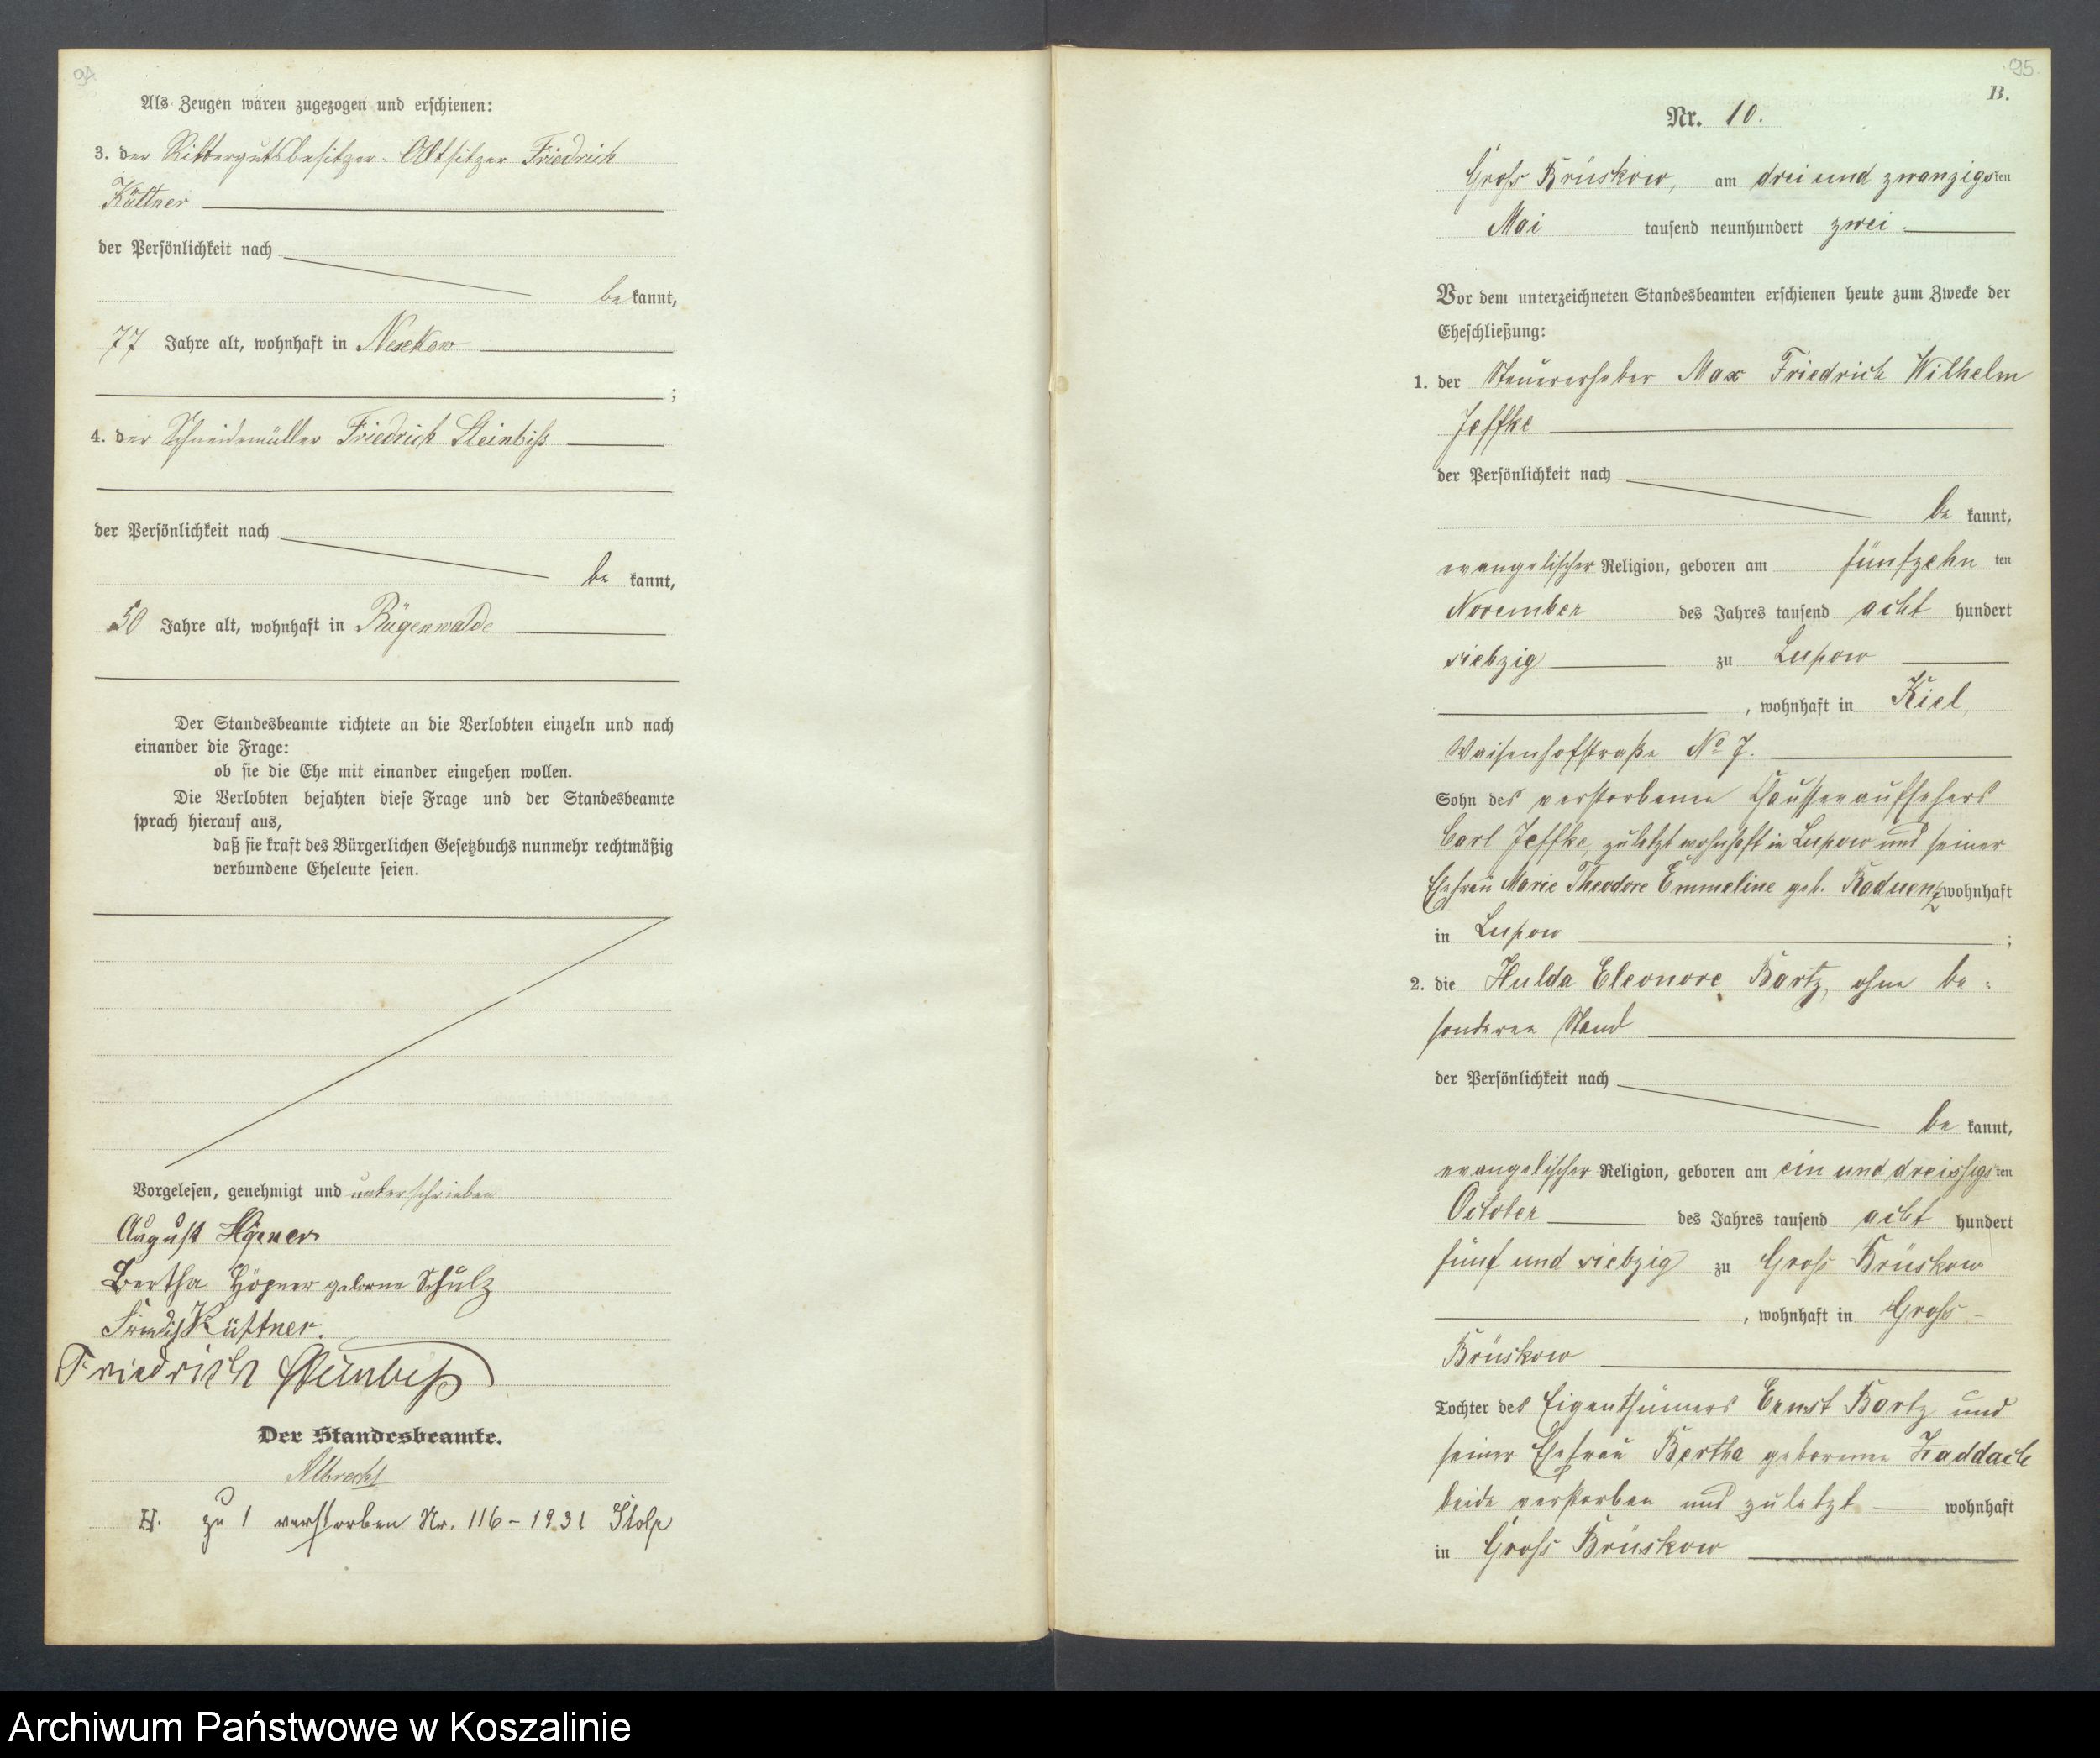 94
Als Zeugen waren zugezogen und erschienen:
3. der Rittergutsbesitzer-Altsitzer Friedrich
Küttner
der Persönlichkeit nach
be kannt,
77 Jahre alt, wohnhaft in Nesekow
;
4. der Schneidemüller Friedrich Steinbiß
der Persönlichkeit nach
be kannt,
50 Jahre alt, wohnhaft in Rügenwalde
Der Standesbeamte richtete an die Verlobten einzeln und nach
einander die Frage:
ob sie die Ehe mit einander eingehen wollen.
Die Verlobten bejahten diese Frage und der Standesbeamte
sprach hierauf aus,
daß sie kraft des Bürgerlichen Gesetzbuchs nunmehr rechtmäßig
verbundene Eheleute seien.
Vorgelesen, genehmigt und unterschrieben
August
Bertha Höpner geborne Schulz
Friedrich Küttner.
Friedrich Steinbiß
Der Standesbeamte.
Albrecht
H. zu 1 verstorben Nr. 116-1931 Stolp
95.
B.
Nr. 10.
Groß Brüskow, am drei und zwanzigsten
Mai tausend neunhundert zwei.
Vor dem unterzeichneten Standesbeamten erschienen heute zum Zwecke der
Eheschließung:
1. der Steuererheber Max Friedrich Wilhelm
Jeffke
der Persönlichkeit nach
be kannt,
evangelischer Religion, geboren am fünfzehn ten
November des Jahres tausend acht hundert
siebzig zu Lupow
, wohnhaft in Kiel,
Waisenhofstraße No 7.
Sohn des verstorbenen Chausseeaufsehers
Carl Jeffke, zuletzt wohnhaft in Lupow und seiner
Ehefrau Marie Theodore Emmeline geb. Raduenz wohnhaft
in Lupow ;
2. die Hulda Eleonore Bartz, ohne be-
sonderen Stand
der Persönlichkeit nach
be kannt,
evangelischer Religion, geboren am ein und dreissigsten
October des Jahres tausend acht hundert
fünf und siebzig zu Groß Brüskow
, wohnhaft in Groß-
Brüskow
Tochter des Eigenthümers Ernst Bartz und
seiner Ehefrau Bertha geborenen Zaddach
beide verstorben und zuletzt wohnhaft
in Groß Brüskow
Archiwum Państwowe w Koszalinie